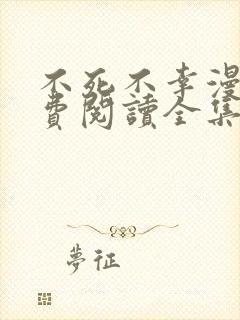 不死不幸漫
費閱讀全集
夢征